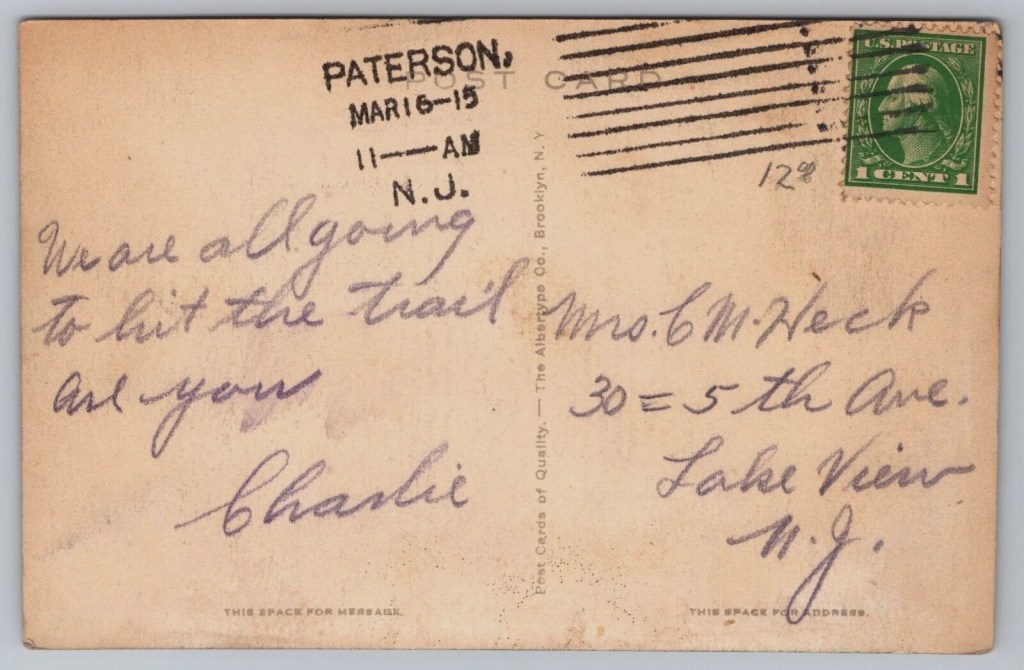 POST CARD
PATERSON,
MAR 16-15
11 — AM
N.J.
U.S. POSTAGE
1 CENT 1
12%
We are all going
to hit the trail
are you
Charlie
Post Cards of Quality. — The Albertype Co., Brooklyn, N.Y.
Mrs. C M. Heck
30 = 5 th Ave.
Lake View
N.J.
THIS SPACE FOR MESSAGE.
THIS SPACE FOR ADDRESS.